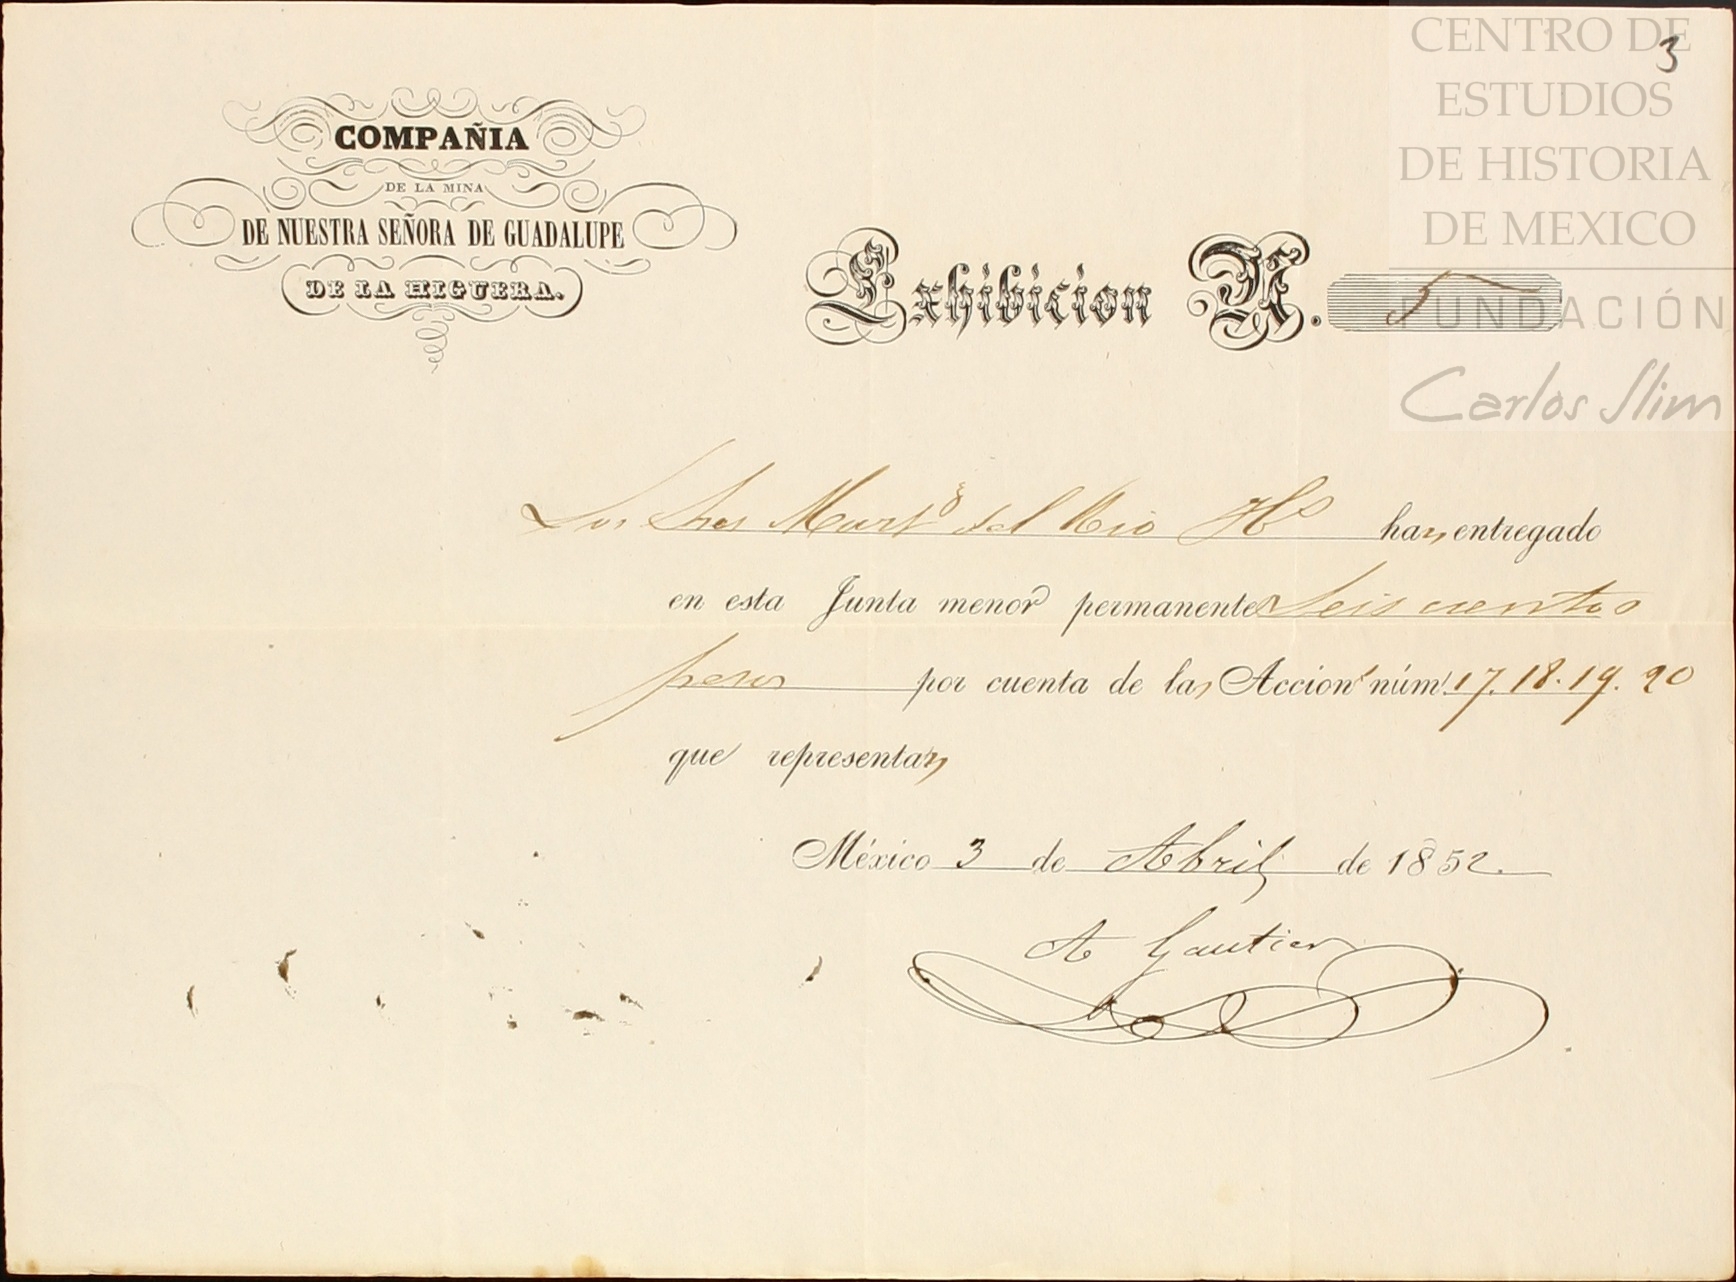 3
CENTRO DE
ESTUDIOS
DE HISTORIA
DE MEXICO
FUNDACIÓN
Carlos Slim
COMPAÑIA
DE LA MINA
DE NUESTRA SEÑORA DE GUADALUPE
DE LA HIGUERA.
Exhibicion N. 5
Los Sres Martz del Rio Hs han entregado
en esta Junta menor permanente Seis cientos
pesos por cuenta de las Accions núms 17. 18. 19. 20
que representan
México 3 de Abril de 1852.
A Gautier